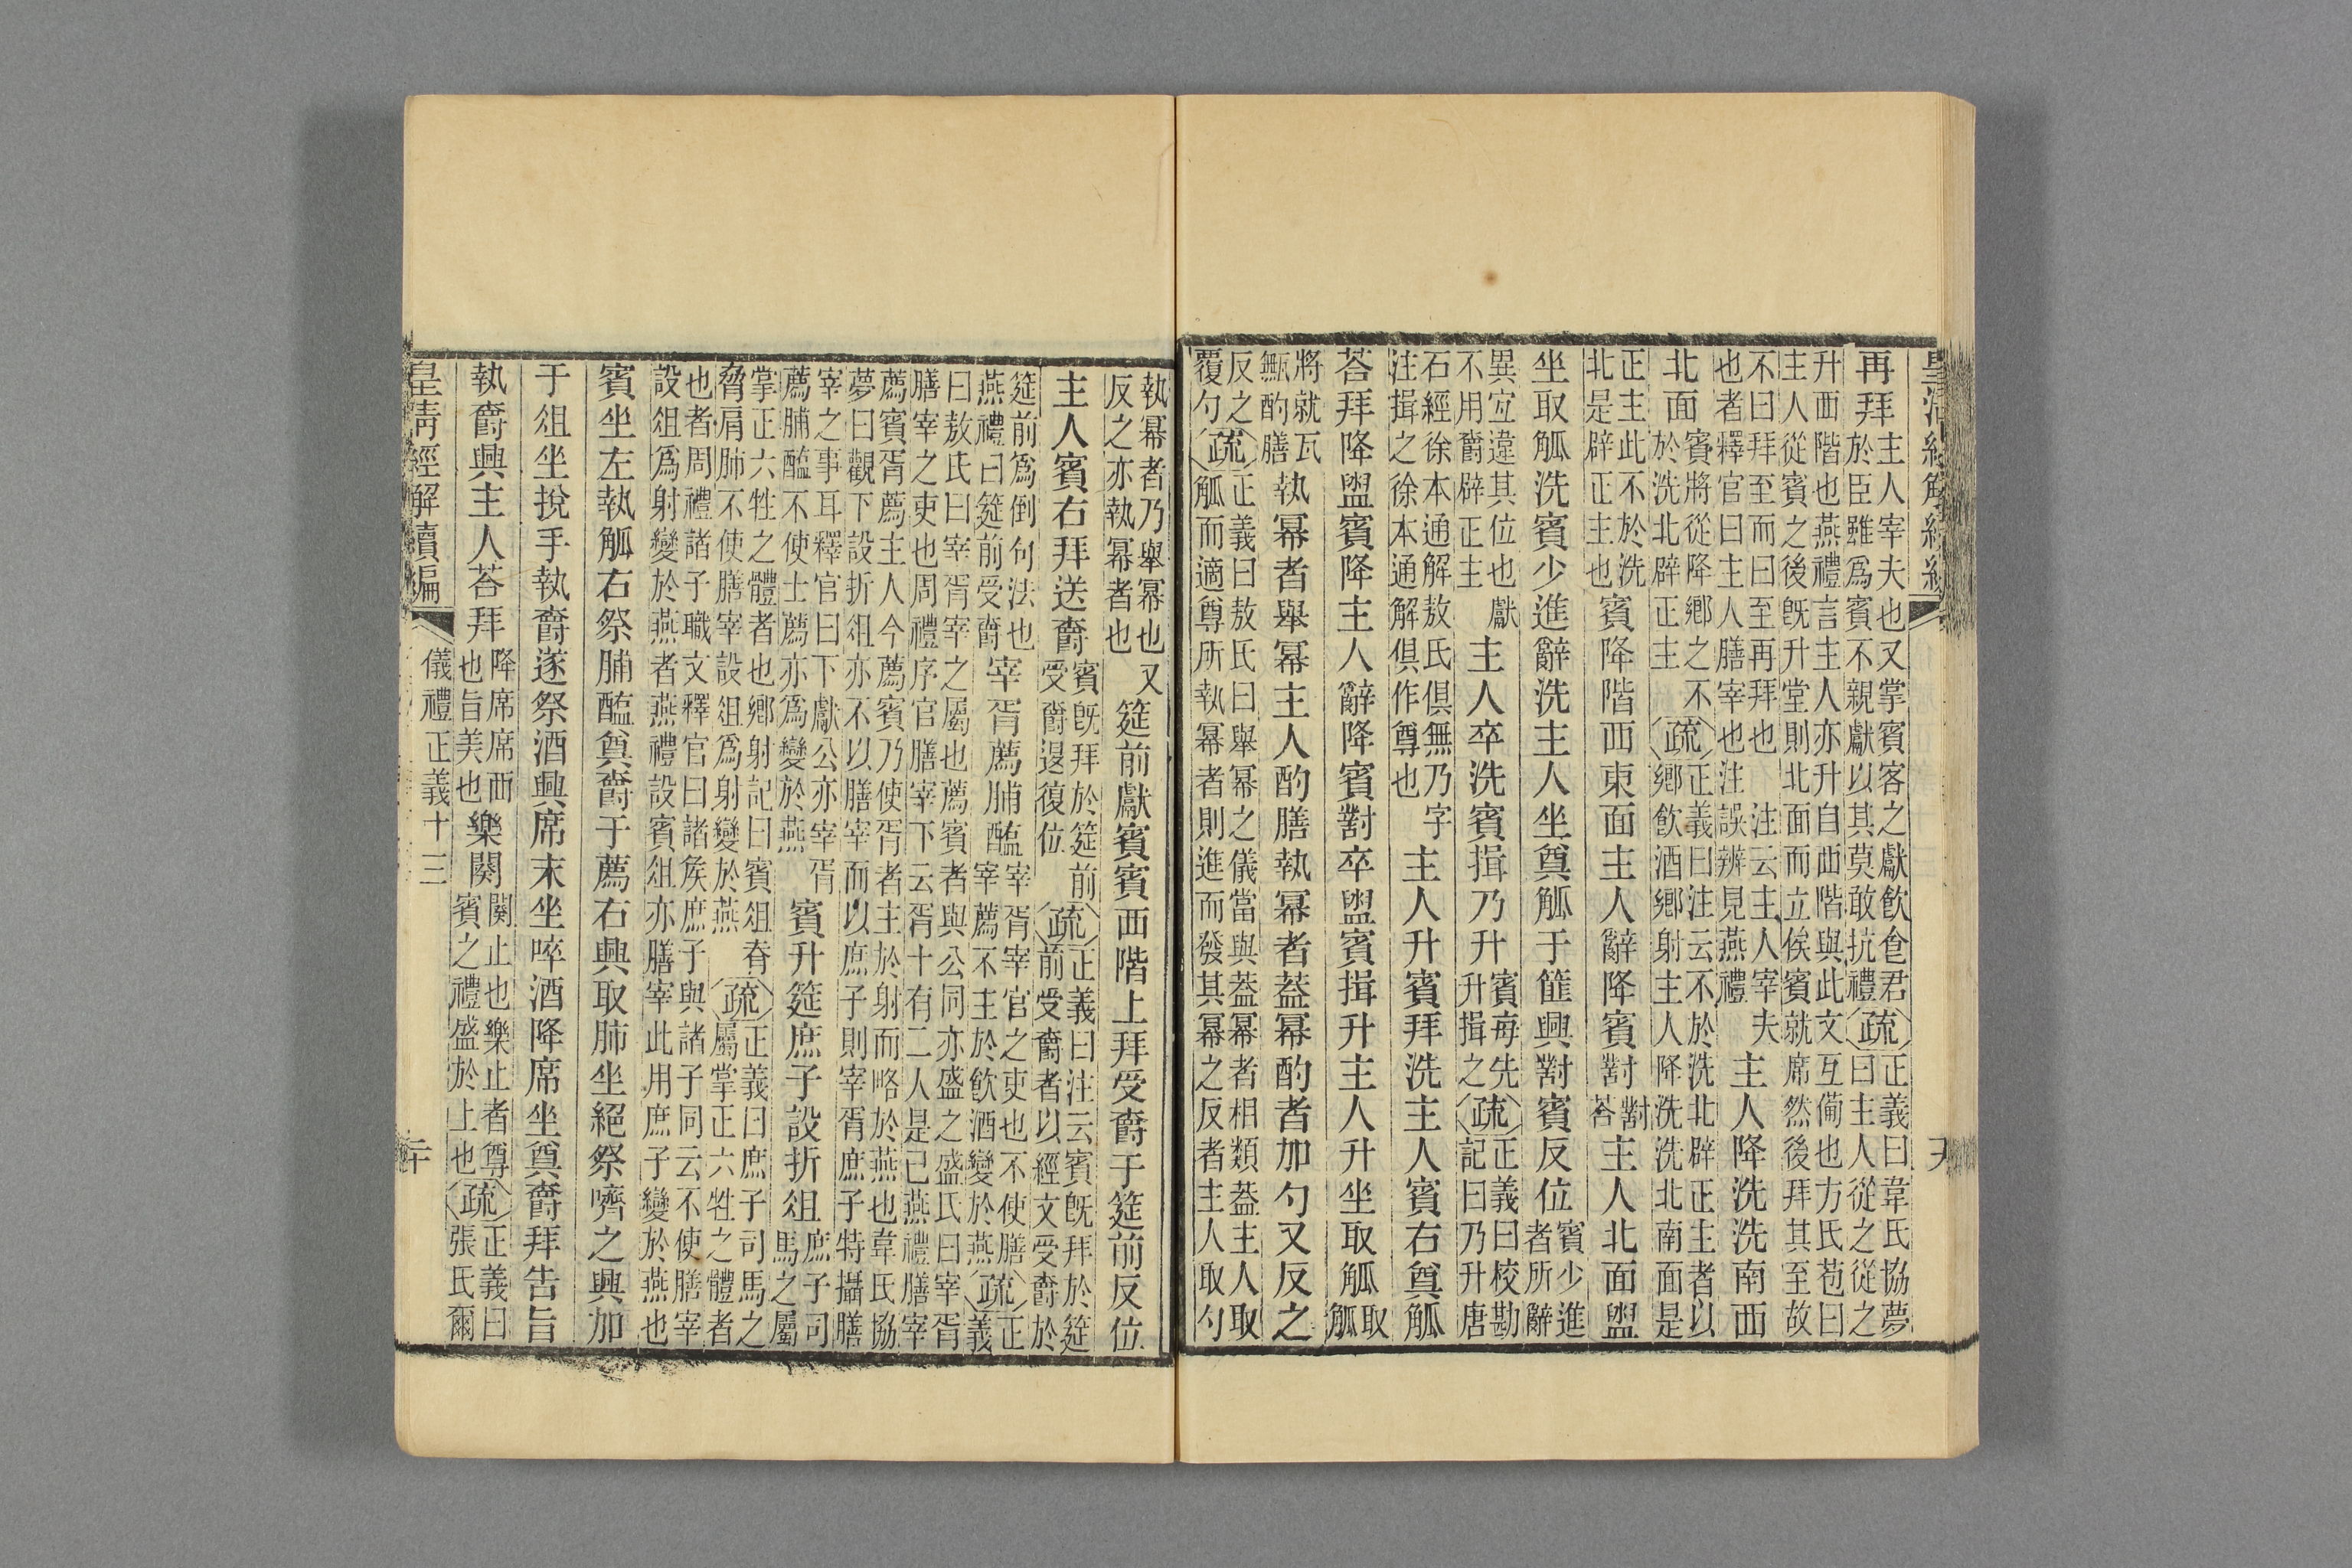 皇清經解續編
再拜主人宰夫也又掌賓客之獻飲食君於臣雖爲賓不親獻以其莫敢抗禮疏正義曰韋氏協夢曰主人從之從之
升西階也燕禮言主人亦升自西階與此文互備也方氏苞曰主人從賓之後旣升堂則北面而立俟賓就席然後拜其至故
不曰拜至而曰至再拜也注云主人宰夫也者釋官曰主人膳宰也注誤辨見燕禮主人降洗洗南西
北面賓將從降鄉之不於洗北辟正主疏正義曰注云不於洗北辟正主者以鄉飲酒鄉射主人降洗洗北南面是
正主此不於洗北是辟正主也賓降階西東面主人辭降賓對對荅主人北面盥
坐取觚洗賓少進辭洗主人坐奠觚于篚興對賓反位賓少進者所辭
異宜違其位也獻不用爵辟正主主人卒洗賓揖乃升賓每先升揖之疏正義曰校勘記曰乃升唐
石經徐本通解敖氏俱無乃字注揖之徐本通解俱作尊也主人升賓拜洗主人賓右奠觚
荅拜降盥賓降主人辭降賓對卒盥賓揖升主人升坐取觚取觚
將就瓦甒酌膳執冪者舉冪主人酌膳執冪者蓋冪酌者加勺又反之
反之覆勺疏正義曰敖氏曰舉冪之儀當與蓋冪者相類蓋主人取觚而適尊所執冪者則進而發其冪之反者主人取勺
執冪者乃舉冪也又反之亦執冪者也筵前獻賓賓西階上拜受爵于筵前反位
主人賓右拜送爵賓旣拜於筵前受爵退復位疏正義曰注云賓旣拜於筵前受爵者以經文受爵於
筵前爲倒句法也燕禮曰筵前受爵宰胥薦脯醢宰胥宰官之吏也不使膳宰薦不主於飲酒變於燕疏正義
曰敖氏曰宰胥宰之屬也薦賓者與公同亦盛之盛氏曰宰胥膳宰之吏也周禮序官膳宰下云胥十有二人是已燕禮膳宰
薦賓胥薦主人今薦賓乃使胥者主於射而略於燕也韋氏協夢曰觀下設折俎亦不以膳宰而以庶子則宰胥庶子特攝膳
宰之事耳釋官曰下獻公亦宰胥薦脯醢不使士薦亦爲變於燕賓升筵庶子設折俎庶子司馬之屬
掌正六牲之體者也鄉射記曰賓俎脊脅肩肺不使膳宰設俎爲射變於燕疏正義曰庶子司馬之屬掌正六牲之體者
也者周禮諸子職文釋官曰諸矦庶子與諸子同云不使膳宰設俎爲射變於燕者燕禮設賓俎亦膳宰此用庶子變於燕也
賓坐左執觚右祭脯醢奠爵于薦右興取肺坐絕祭嚌之興加
于俎坐挩手執爵遂祭酒興席末坐啐酒降席坐奠爵拜告旨
執爵興主人荅拜降席席西也旨美也樂闋闋止也樂止者尊賓之禮盛於上也疏正義曰張氏爾
皇清經解續編 儀禮正義十三 二十